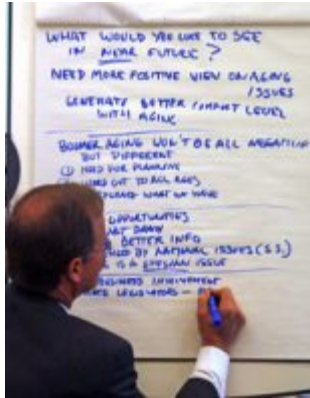 WHAT WOULD YOU LIKE TO SEE
IN NEAR FUTURE?
NEED MORE POSITIVE VIEW ON AGING
ISSUES
GENERATE BETTER COMFORT LEVEL
WITH AGING
BOOMER AGING WON'T BE ALL NEGATIVE
BUT DIFFERENT
① NEED FOR PLANNING
OUT TO ALL AGES
WHAT WE HAVE
OPPORTUNITIES
BETTER INFO
BY NATIONAL ISSUES (S.S.)
IS A ISSUE
BUSINESS INVOLVEMENT
LEGISLATORS –